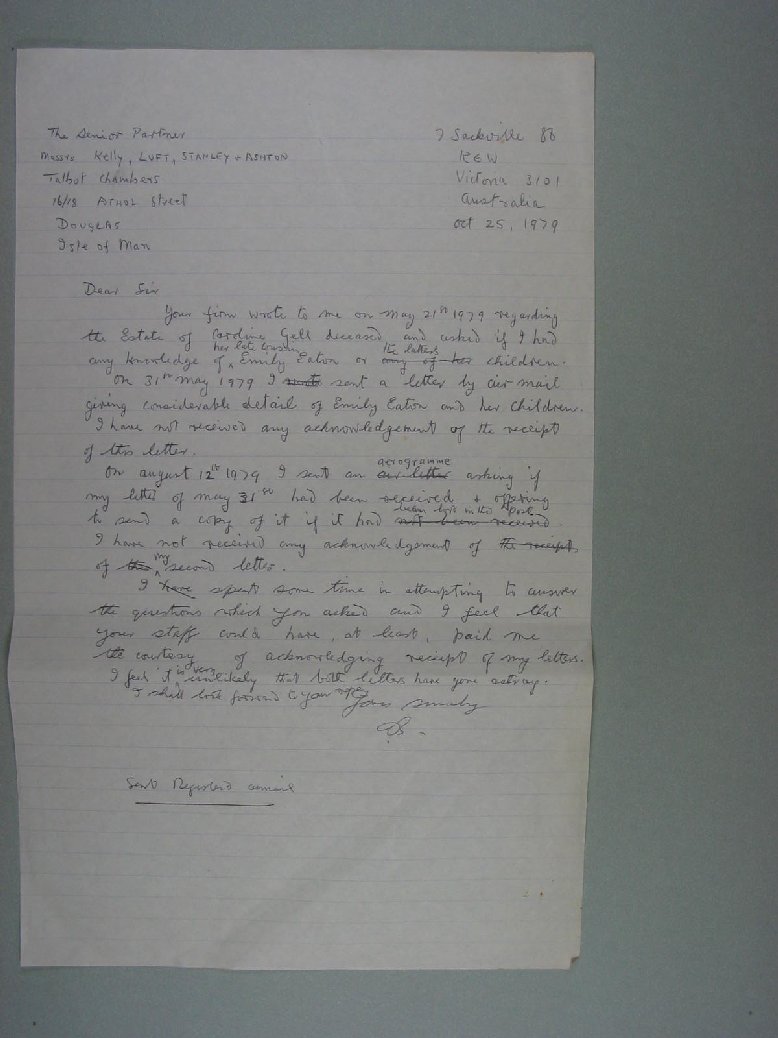 The Senior Partner
Messrs Kelly, LUFT, STANLEY & ASHTON
Talbot Chambers
16/18 ATHOL Street
DOUGLAS
Isle of Man
7 Sackville St
KEW
Victoria 3101
Australia
Oct 25, 1979
Dear Sir
Your firm wrote to me on May 21st 1979 regarding
the Estate of Caroline Gell deceased and asked if I had
her late cousin the latter's
any knowledge of Emily Eaton or any of her children.
On 31st May 1979 I sent a letter by air mail
giving considerable detail of Emily Eaton and her children.
I have not received any acknowledgement of the receipt
of this letter.
aerogramme
On August 12th 1979 I sent an air letter asking if
my letter of May 31st had been received & offering
been lost in the post
to send a copy of it if it had not been received.
I have not received any acknowledgement of the receipt
my
of this second letter.
I have spent some time in attempting to answer
the questions which you asked and I feel that
your staff could have, at least, paid me
the courtesy of acknowledging receipt of my letters.
I feel it is very unlikely that both letters have gone astray.
I shall look forward to your reply
Yours sincerely
Sent Registered airmail